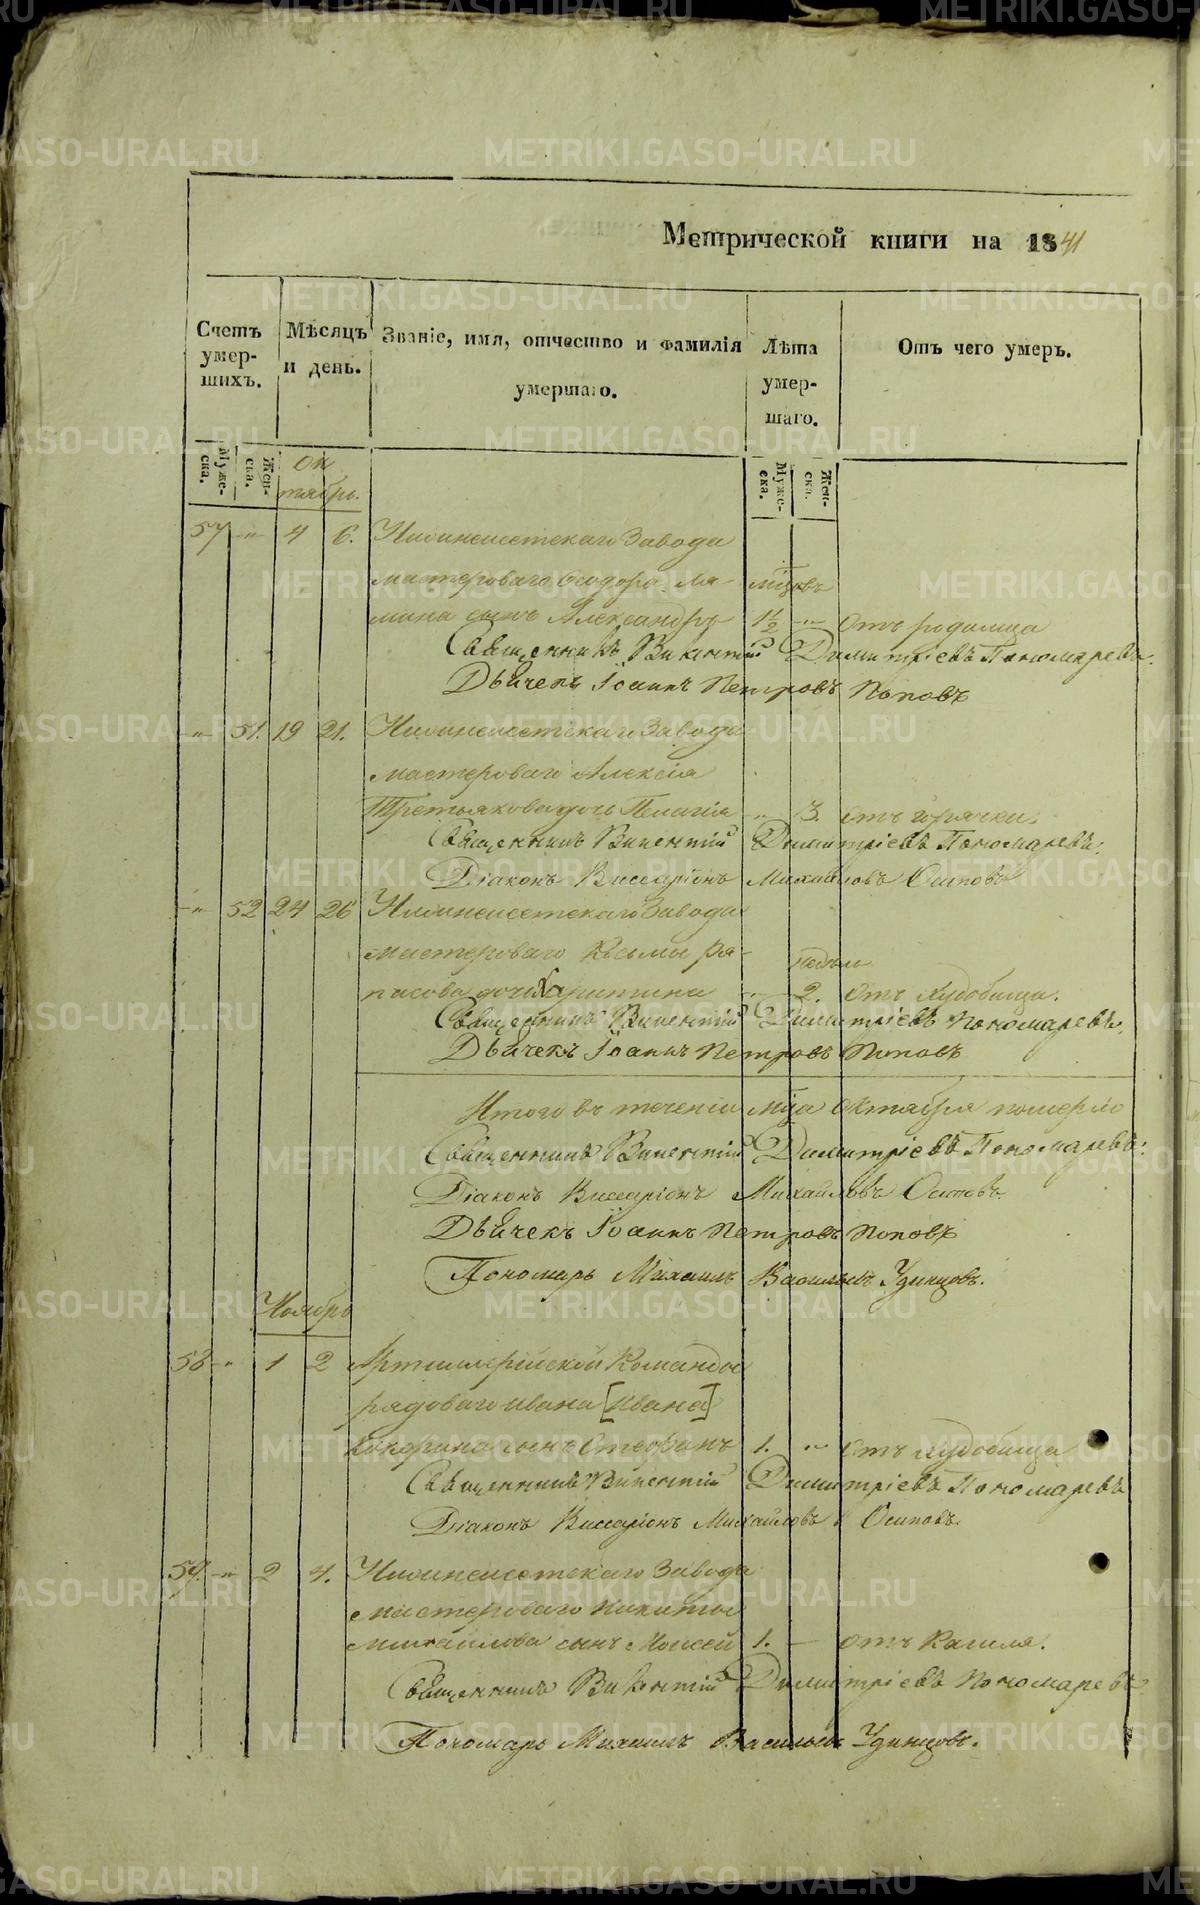 Метрической книги на 1841
Счетъ умер-шихъ.
Мѣсяцъ и день.
Званіе, имя, отчество и фамилія умершаго.
Лѣта умер-шаго.
Отъ чего умеръ.
Муже-ска. Жен-ска. Ок
тябрь.
Муже-ска. Жен-ска.
57 " 4 6. Нижнеисетскаго Завода
мастероваго Ѳеодора Ля- мѣцовъ
мина сынъ Александръ 1½ " отъ родимца
Священникъ Викентій Димитріевъ Пономаревъ.
Дьячекъ Іоаннъ Петровъ Поповъ
" 51. 19 21. Нижнеисетскаго Завода
мастероваго Алексія
Третьякова дочь Пелагія " 3. отъ горячки.
Священникъ Викентій Димитріевъ Пономаревъ.
Діаконъ Виссаріонъ Михайловъ Осиповъ
" 52 24 26 Нижнеисетскаго Завода
мастероваго Козьмы Ря- недѣли
пасова дочь Харитина " 2. отъ худобища.
Священникъ Викентій Димитріевъ Пономаревъ.
Дьячекъ Іоаннъ Петровъ Поповъ
Итого въ теченіи мѣца октября померло
Священникъ Викентій Димитріевъ Пономаревъ.
Діаконъ Виссаріонъ Михайловъ Осиповъ.
Дьячекъ Іоаннъ Петровъ Поповъ
Пономарь Михаилъ Васильевъ Удинцовъ.
Ноябрь
58 " 1 2 Артиллерійской Команды
рядоваго Ивана [Ивана]
Кокорина сынъ Стефанъ 1. " отъ худобища
Священникъ Викентій Димитріевъ Пономаревъ
Діаконъ Виссаріонъ Михайловъ Осиповъ.
59. " 2 4. Нижнеисетскаго Завода
мастероваго Никиты
Михайлова сынъ Моисей 1. — отъ Кашля.
Священникъ Викентій Димитріевъ Пономаревъ
Пономарь Михаилъ Васильевъ Удинцовъ.
METRIKI.GASO-URAL.RU